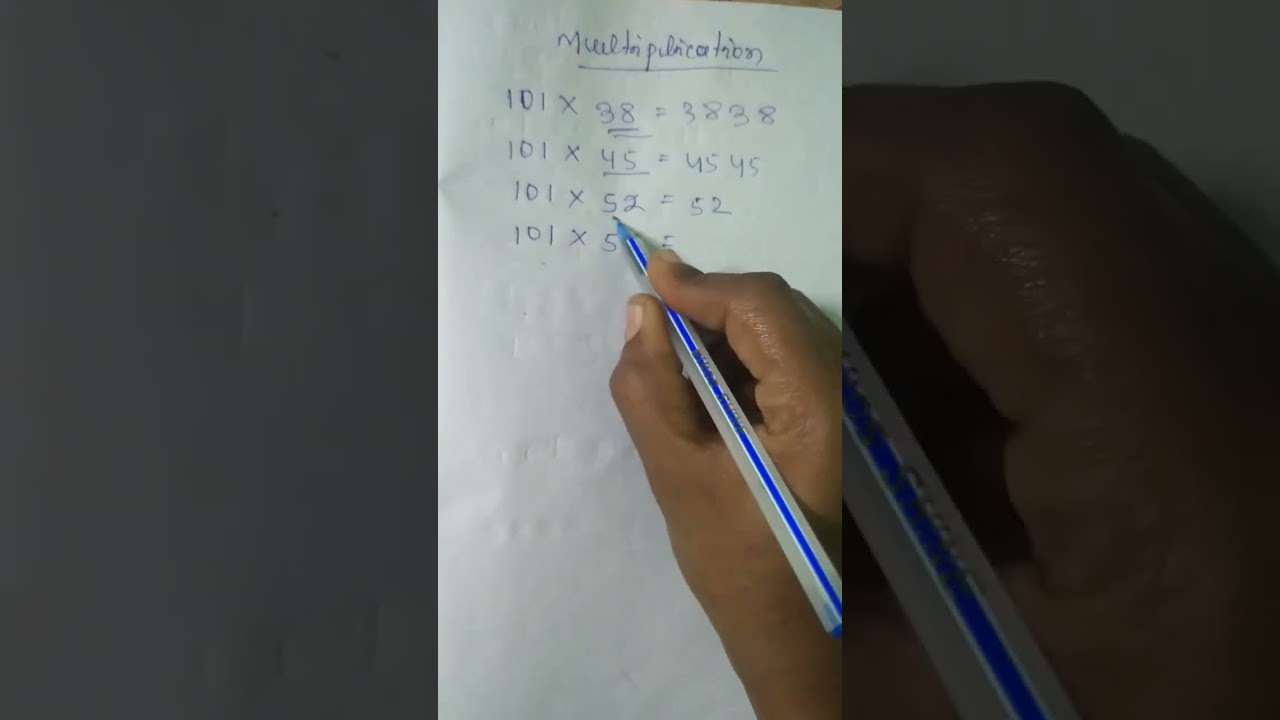 Multiplication
101 × 38 = 3838
101 × 45 = 4545
101 × 52 = 52
101 × 5 =